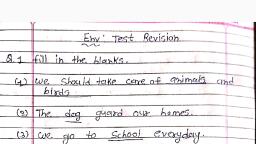 Env: Test Revision
Q.1 fill in the blanks.
(1) We should take care of animals and
birds
(2) The dog guard our homes.
(3) We go to School everyday.